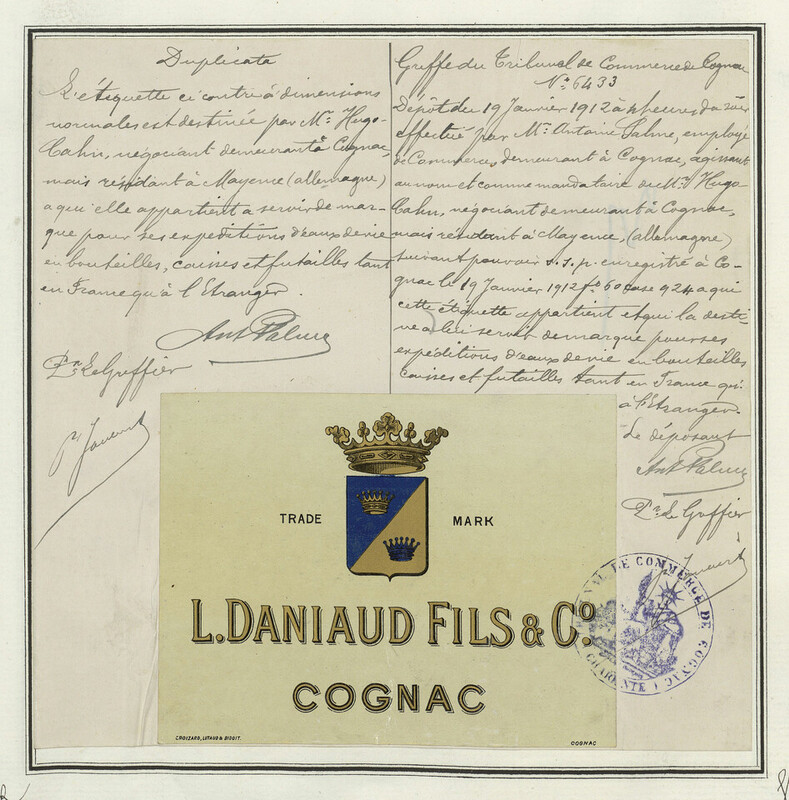 Duplicata
L'étiquette ci contre à dimensions
normales est destinée par Mr. Hugo
Cahn, négociant demeurant à Cognac,
mais résidant à Mayence (allemagne)
a qui elle appartient a servir de mar-
que pour ses expéditions d'eaux de vie
en bouteilles, caisses et futailles tant
en France qu'à l'Etranger.
Ant Palme
Pr. Le Greffier
Greffe du Tribunal de Commerce de Cognac
No. 6433
Dépôt du 19 Janvier 1912 à heures du soir
effectué par Mr. Antoine Palme, employé
de Commerce, demeurant à Cognac, agissant
au nom et comme mandataire de Mr. Hugo
Cahn, négociant demeurant à Cognac,
mais résidant à Mayence, (allemagne)
suivant pouvoir s.s.p. enregistré à Co-
gnac le 19 Janvier 1912 fo 60 case 924 a qui
cette étiquette appartient et qui la desti-
ne a lui servir de marque pour ses
expéditions d'eaux de vie en bouteilles
caisses et futailles tant en France qu'
à l'Etranger.
Le déposant
Ant Palme
Pr. Le Greffier
TRADE MARK
L. DANIAUD FILS & Co.
COGNAC
CROIZARD, LUTAUD & DIDOIT.
COGNAC
TRIBUNAL DE COMMERCE DE COGNAC
CHARENTE